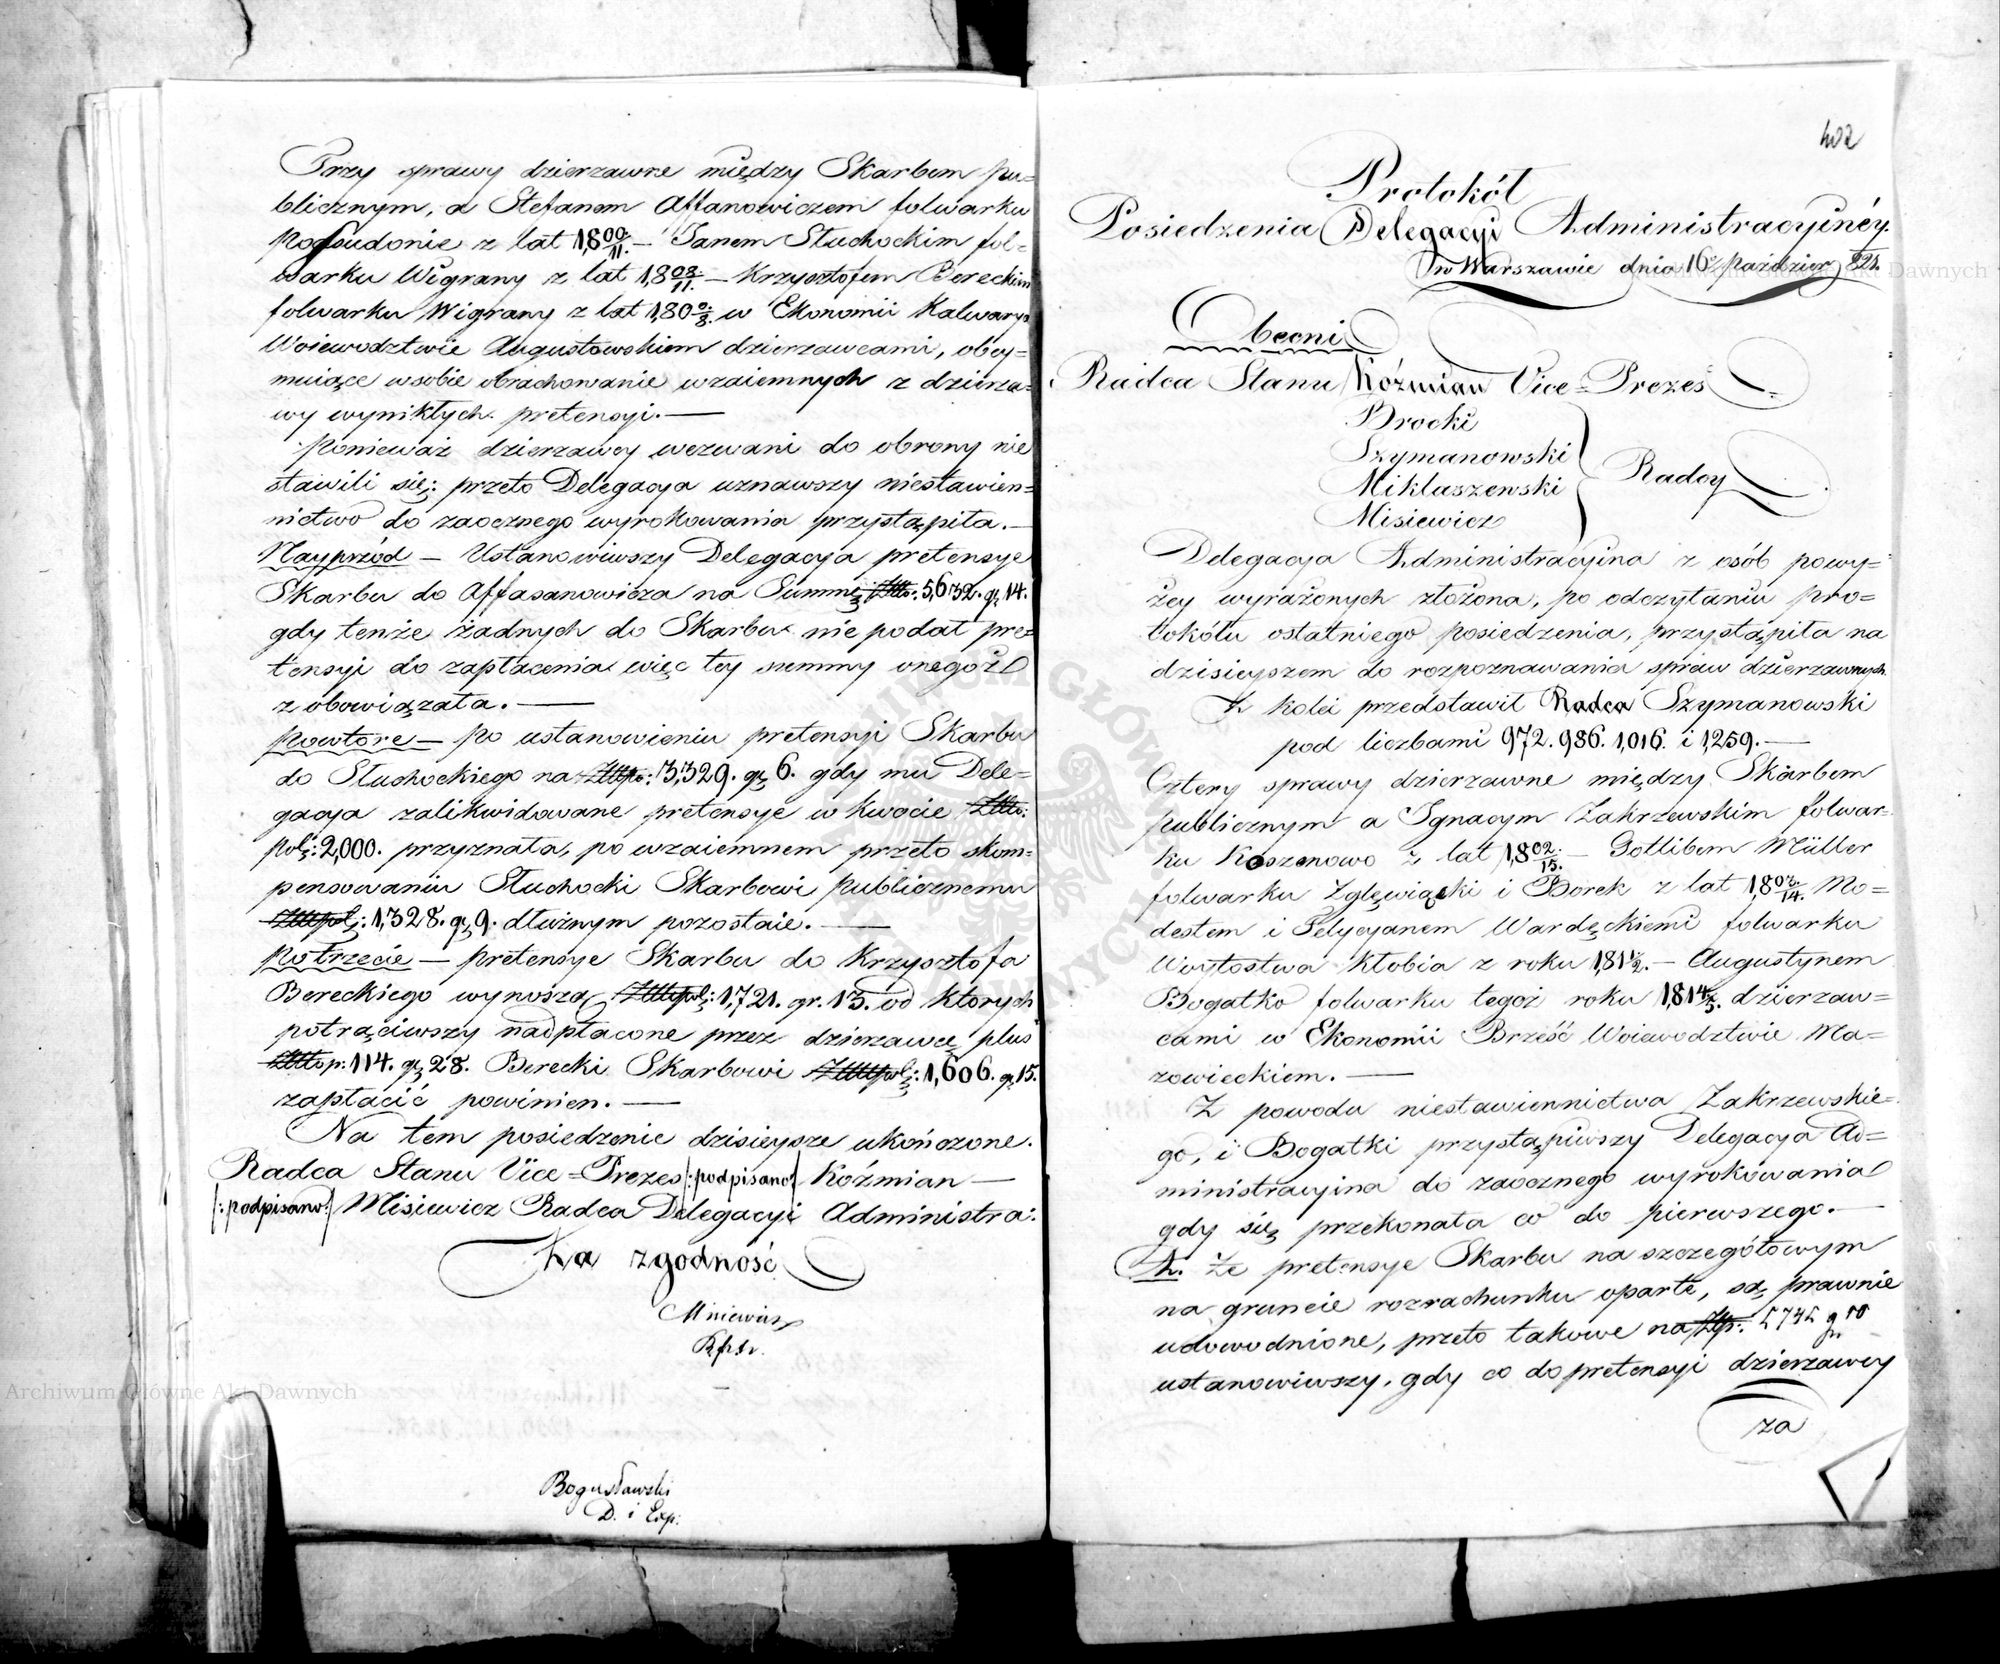 Trzy sprawy dzierzawne między Skarbem pu=
blicznym, a Stefanem Affanowiczem folwarku
z lat 1,8 09/11. — Janem Stuchockim fol=
warku Wigrany z lat 1,8 08/11. — Krzysztofem Bereckim
folwarku Wigrany z lat 1,80 w Ekonomii Kalwarya
Woiewodztwie Augustowskiem dzierzawcami, obey=
muiące w sobie obrachowanie wzaiemnych z dzierza=
wy wynikłych pretensyi. —
Ponieważ dzierzawcy wezwani do obrony nie
stawili się: przeto Delegacya uznawszy niestawien=
nictwo do zaocznego wyrokowania przystąpiła. —
Nayprzód — Ustanowiwszy Delegacya pretensye
Skarbu do Affasanowicza na Summę Złto: 5,632. gr. 14.
gdy tenże żadnych do Skarbu nie podał pre=
tensyi do zapłacenia więc tey summy onegoż
zobowiązała. —
Powtóre — po ustanowieniu pretensyi Skarbu
do Stuchockiego na Złtp: 3,329. gr. 6. gdy mu Dele=
gacya zalikwidowane pretensye w kwocie Złto:
pol: 2,000. przyznała, po wzaiemnem przeto skom=
pensowaniu Stuchocki Skarbowi publicznemu
Złtpol: 1,328. gr. 9. dłużnym pozostaie. —
Potrzecie — pretensye Skarbu do Krzysztofa
Bereckiego wynoszą Złtpol: 1,721. gr. 13. od których
potrąciwszy nadpłacone przez dzierzawcę plus
Złtop: 114. gr. 28. Berecki Skarbowi Złttpol: 1,606. gr. 15.
zapłacić powinien. —
Na tem posiedzenie dzisieysze ukończone.
Radca Stanu Vice=Prezes /:podpisano:/ Koźmian —
/:podpisano:/ Misiewicz Radca Delegacyi Administra:
Za zgodność
Bogusławski
D. i Exp:
402
Protokół
Posiedzenia Delegacyi Administracyinéy
w Warszawie dnia 16 Paździer 821.
Obecni
Radca Stanu Koźmian Vice=Prezes
Brocki
Szymanowski
Radcy
Miklaszewski
Misiewicz
Delegacya Administracyina z osób powy=
żey wyrażonych złożona, po odczytaniu pro=
tokółu ostatniego posiedzenia, przystąpiła na
dzisieyszem do rozpoznawania spraw dzierzawnych.
Z kolei przedstawił Radca Szymanowski
pod liczbami 972. 986. 1,016. i 1,259. —
Cztery sprawy dzierzawne między Skarbem
publicznym a Ignacym Zakrzewskim folwar=
ku Koszanowo z lat 1,8 02/15. — Gottlibem Müller
folwarku Zglęwiącki i Borek z lat 1,8 03/14. Mo=
destem i Felycyanem Wardęckiemi folwarku
Woytostwa Kłobia z roku 1,81 1/2. — Augustynem
Bogatko folwarku tegoż roku 1,81 4/5. dzierzaw=
cami w Ekonomii Brześć Woiewodztwie Ma=
zowieckiem. —
Z powodu niestawiennictwa Zakrzewskie=
go, i Bogatki przystąpiwszy Delegacya Ad=
ministracyina do zaocznego wyrokowania
gdy się przekonała co do pierwszego. —
Że pretensye Skarbu na szczegółowym
na gruncie rozrachunku oparte, są prawnie
udowodnione, przeto takowe na Złp: 5745 gr 10
ustanowiwszy, gdy co do pretensyi dzierzawcy
za
Archiwum Główne Akt Dawnych